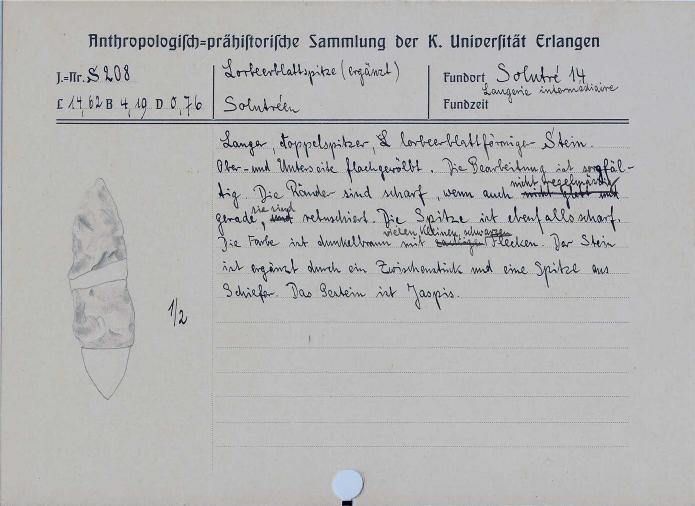 Anthropologisch=prähistorische Sammlung der K. Universität Erlangen
J.=Nr. S 208
L 14,62 B 4,19 D 0,76
Lorbeerblattspitze (ergänzt)
Solutréen
Fundort Solutré 14
Langerie intermédiaire
Fundzeit
Langer, doppelspitzer, lorbeerblattförmiger Stein.
Ober- und Unterseite flachgewölbt. Die Bearbeitung ist sorgfäl-
tig. Die Ränder sind scharf, wenn auch nicht regelmässig
gerade, sie sind retuschiert. Die Spitze ist ebenfalls scharf.
Die Farbe ist dunkelbraun mit vielen kleinen, schwarzen Flecken. Der Stein
ist ergänzt durch ein Zwischenstück und eine Spitze aus
Schiefer. Das Gestein ist Jaspis.
1/2